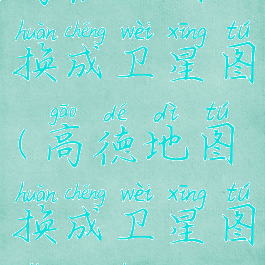 huàn chéng wèi xīng tú
换成卫星图
gāo dé dì tú
(高德地图
huàn chéng wèi xīng tú
换成卫星图